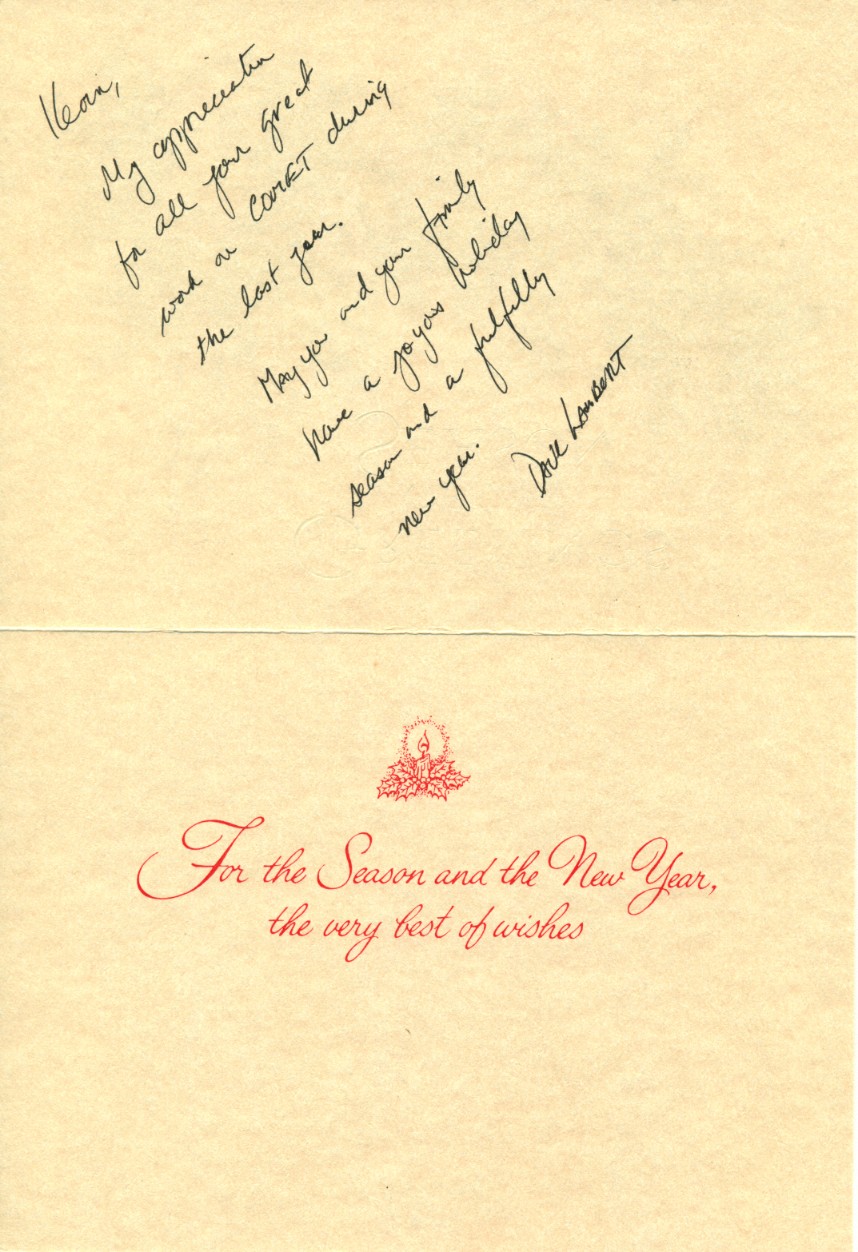 Kevin,
My appreciation
for all your great
work on during
the last year.
May you and your family
have a joyous holiday
season and a
new year.
For the Season and the New Year,
the very best of wishes